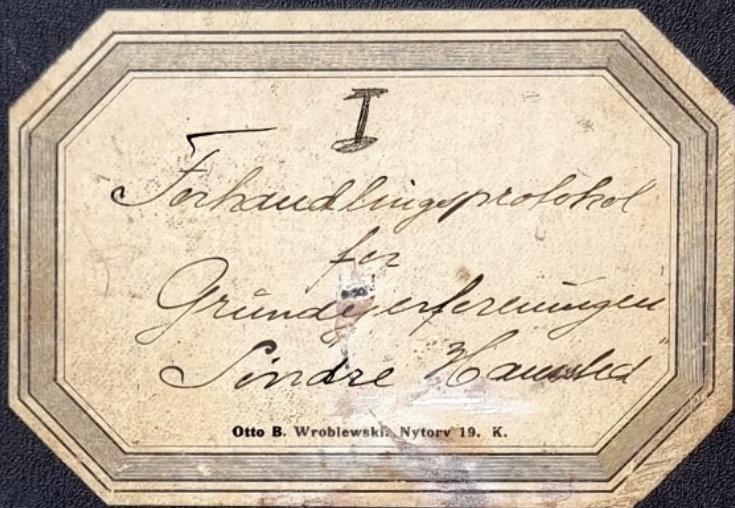 I
Forhandlingsprotokol
for
Grundejerforeningen
Söndre
Otto B. Wroblewski. Nytorv 19. K.